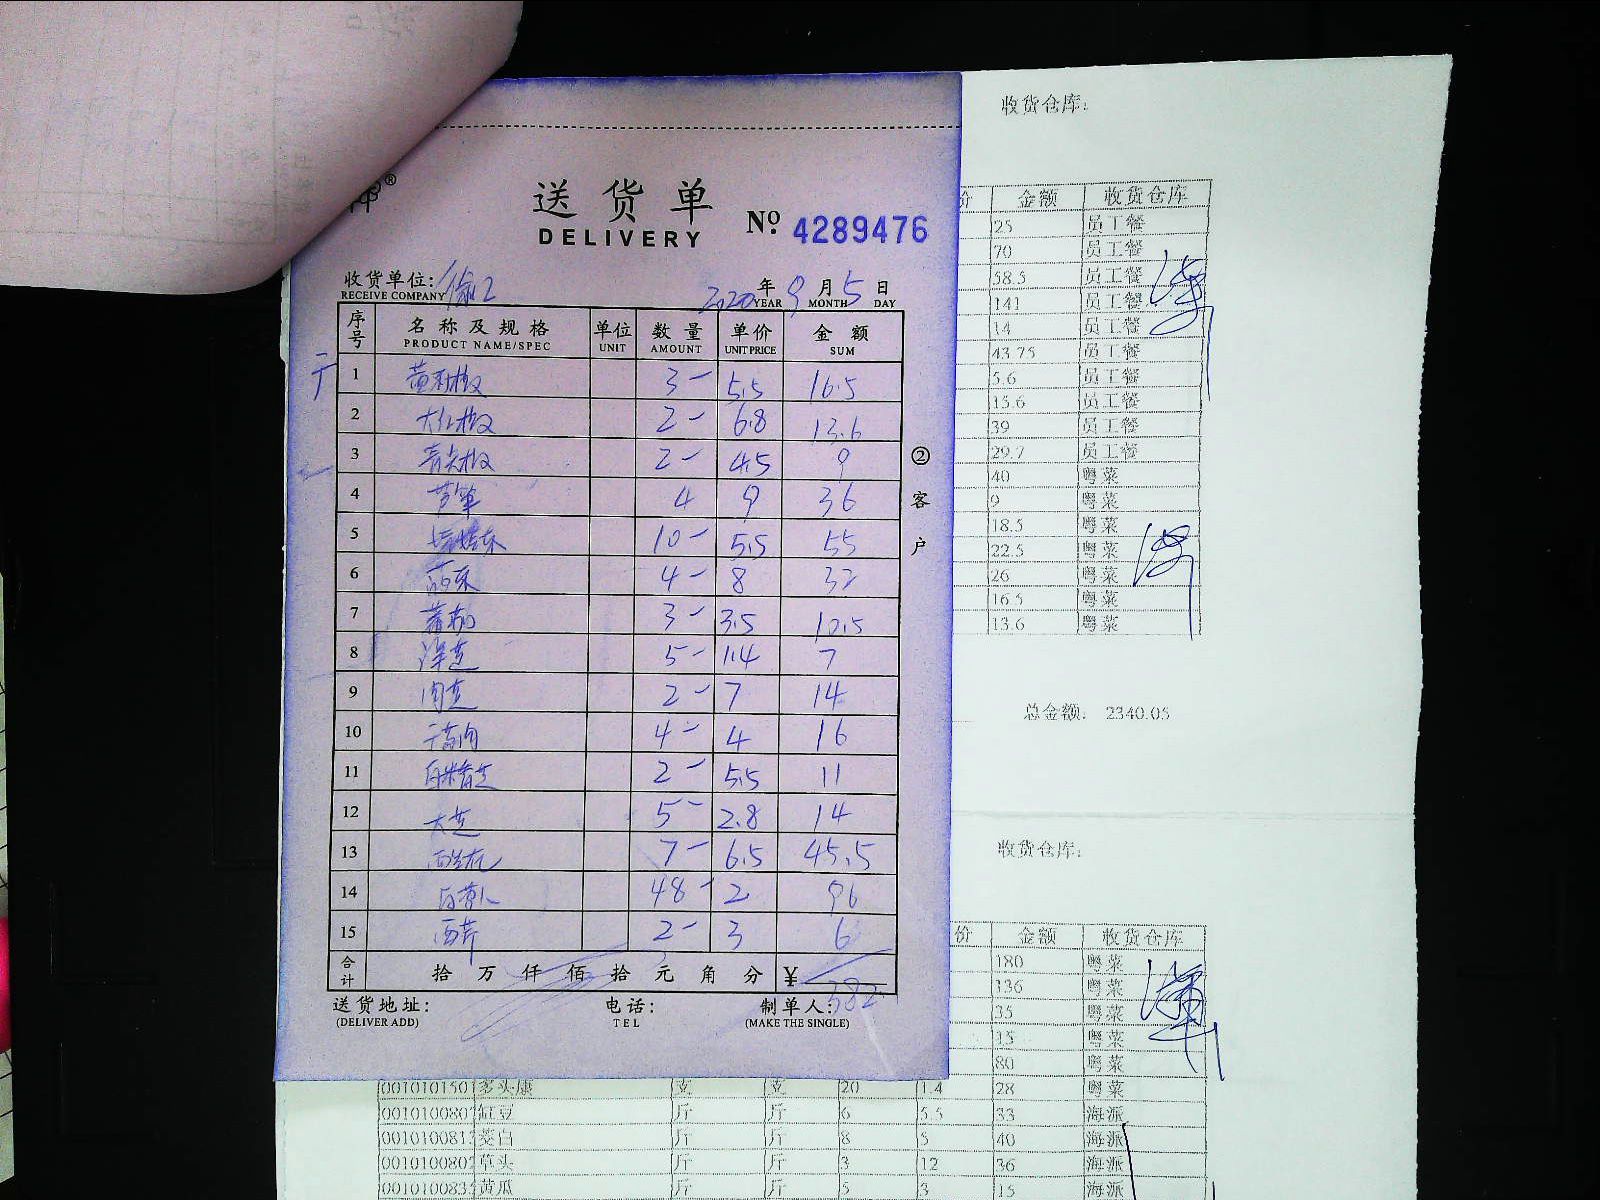 送货单
DELIVERY
№ 4289476
收货单位:
RECEIVE COMPANY
2020 年 9 月 5 日
YEAR MONTH DAY
序号 名称及规格 单位 数量 单价 金额
PRODUCT NAME/SPEC UNIT AMOUNT UNIT PRICE SUM
1 3 5.5 16.5
2 大红椒 2 6.8 13.6
3 青尖椒 2 4.5 9
4 芦笋 4 9 36
5 10 5.5 55
6 4 8 32
7 3 3.5 10.5
8 洋葱 5 1.4 7
9 2 7 14
10 4 4 16
11 2 5.5 11
12 大葱 5 2.8 14
13 西兰花 7 6.5 45.5
14 48 2 96
15 西芹 2 3 6
合计 拾 万 仟 佰 拾 元 角 分 ¥
382
送货地址: 电话: 制单人:
(DELIVER ADD) TEL (MAKE THE SINGLE)
②客户
收货仓库:
价 金额 收货仓库
25 员工餐
70 员工餐
58.5 员工餐
141 员工餐
14 员工餐
43.75 员工餐
5.6 员工餐
15.6 员工餐
39 员工餐
29.7 员工餐
40 粤菜
9 粤菜
18.5 粤菜
22.5 粤菜
26 粤菜
16.5 粤菜
13.6 粤菜
总金额: 2340.05
收货仓库:
价 金额 收货仓库
180 粤菜
136 粤菜
35 粤菜
15 粤菜
80 粤菜
0010101501 多头康 支 支 20 1.4 28 粤菜
001010080 豇豆 斤 斤 6 5.5 33 海派
001010081 茭白 斤 斤 8 5 40 海派
001010080 草头 斤 斤 3 12 36 海派
001010083 黄瓜 斤 斤 5 3 15 海派